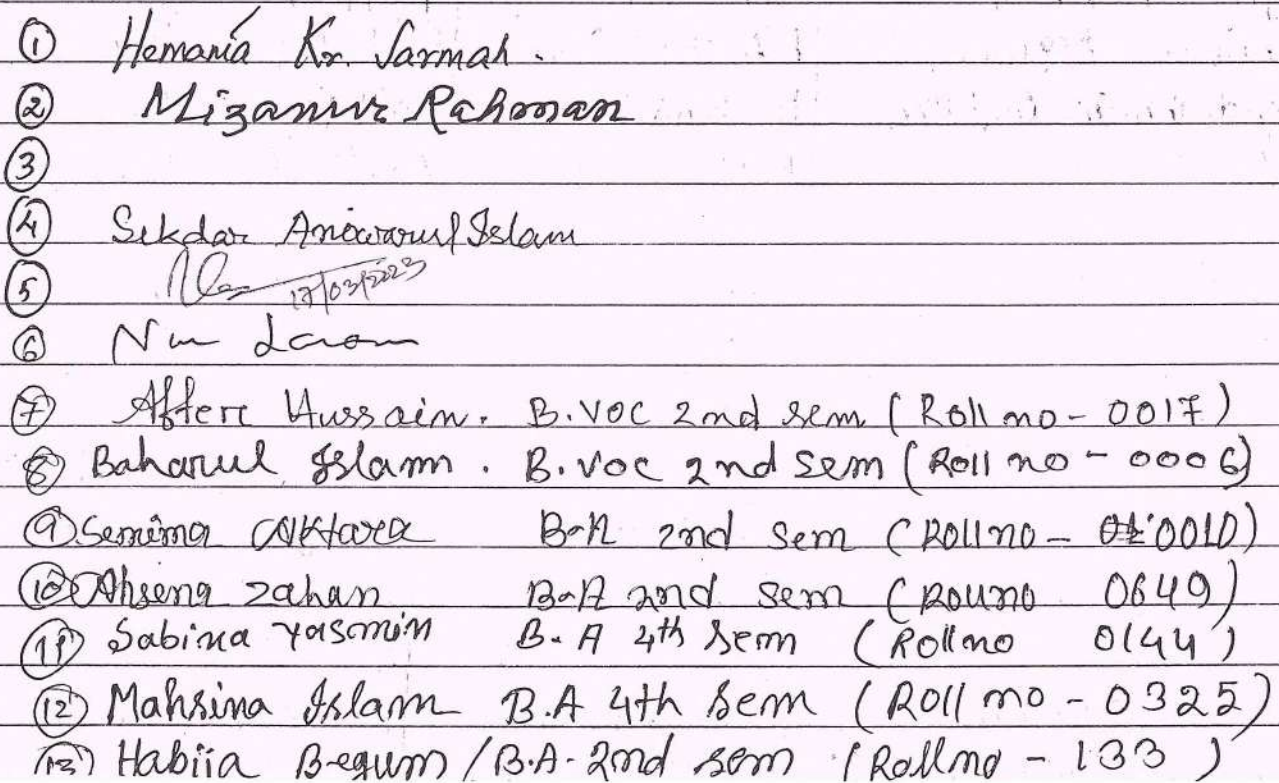 ① Hemanía Kr. Sarmah.
② Mizanur Rahman
③
④ Sekdar Anowarul Islam
⑤ 17/03/2023
⑥ Nur
⑦ Afferc Hussain. B.VOC 2nd sem (Roll no - 0017)
⑧ Baharul Islam. B.VOC 2nd sem (Roll no - 0006)
⑨ Semima Aktara B.A 2nd sem (Roll no - 0010)
⑩ Ahsena Zahan B.A 2nd sem (Roll no 0649)
⑪ Sabina Yasmin B.A 4th sem (Roll no 0144)
⑫ Mahsina Islam B.A 4th sem (Roll no - 0325)
⑬ Habiia Begum / B.A. 2nd sem (Roll no - 133)